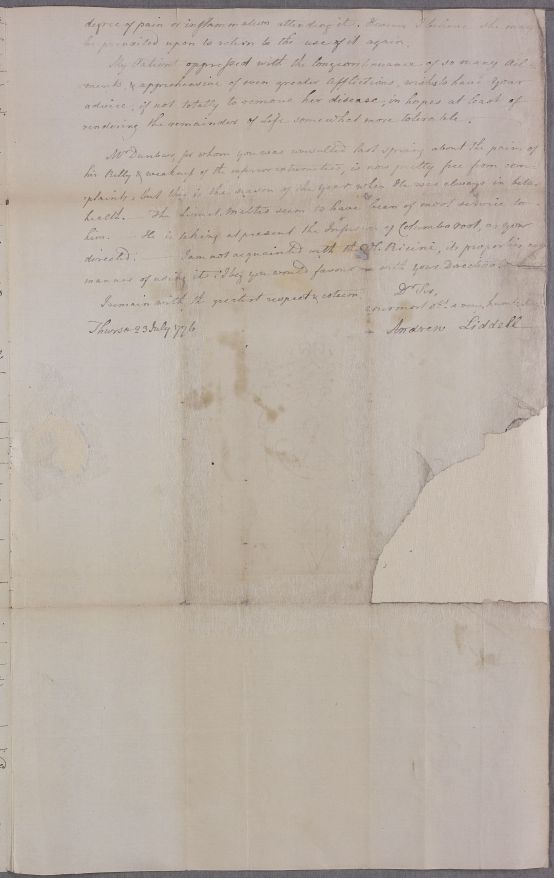 degree of pain or inflammation attending it. However I believe she may
be prevailed upon to return to the use of it again.
My Patient oppressed with the long continuance of so many Ail-
ments & apprehensive of even greater afflictions, wishes to have your
advice, if not totally to remove her disease, in hopes at least of
rendering the remainder of Life somewhat more tolerable.
Mr Dunbar, for whom you was consulted last spring about the pain of
his Belly & weakness of the inferior extremities, is now pretty free from com-
plaints, but this is the season of the year when He was always in better
health. The have been of most service to
him. He is taking at present the Infusion of Columbo root, as you
directed. I am not acquainted with the Ol. Ricini, its properties or
manner of using it: I beg you would favour with your Directions.
I remain with the greatest respect & esteem
Dr Sir,
your most
Thursd. 23 July 1776
Andrew Liddell